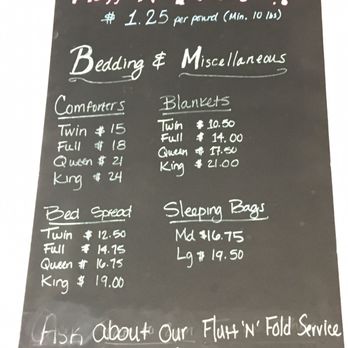 $ 1.25 per pound (Min. 10 lbs)
Bedding & Miscellaneous
Comforters
Twin $ 15
Full $ 18
Queen $ 21
King $ 24
Blankets
Twin $ 10.50
Full $ 14.00
Queen $ 17.50
King $ 21.00
Bed Spread
Twin $ 12.50
Full $ 14.75
Queen $ 16.75
King $ 19.00
Sleeping Bags
Md $16.75
Lg $ 19.50
Ask about Our Fluff 'N' Fold Service